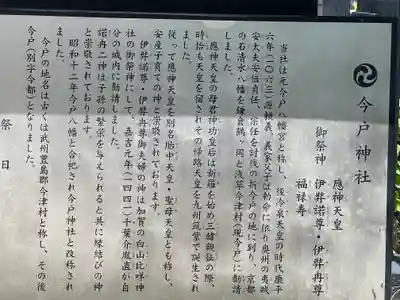 今戸神社
御祭神
應神天皇
伊弉諾尊・伊弉冉尊
福禄寿
当社は元今戸八幡宮と称し、後冷泉天皇の時代康平
六年（一〇六三）源頼義、義家父子は勅命に依り奥州の夷賊
安太夫安倍貞任、宗任を討伐の折今戸の地に到り、京都
の石清水八幡を鎌倉鶴ヶ岡と浅草今津村（現今戸）に勧請
應神天皇の母君神功皇后は新羅を始め三韓親征の際
時恰も天皇を宿されその帰路天皇を九州筑紫で誕生され
従って應神天皇を別名胎中天皇・聖母天皇とも称し、
安産子育ての神と崇敬されております。
伊弉諾尊・伊弉冉尊御夫婦の神は加賀の白山比咩神
社の御祭神にして、嘉吉元年（一四四一）千葉介胤直が自
分の城内に勧請しました。
諾冉二神は子孫の繁栄を与えられると共に縁結びの神
と崇敬されております。
昭和十二年今戸八幡と合祀され今戸神社と改称され
ました。
今戸の地名は古くは武州豊島郡今津村と称し、その後
今戸（別字今都）となりました。
祭日